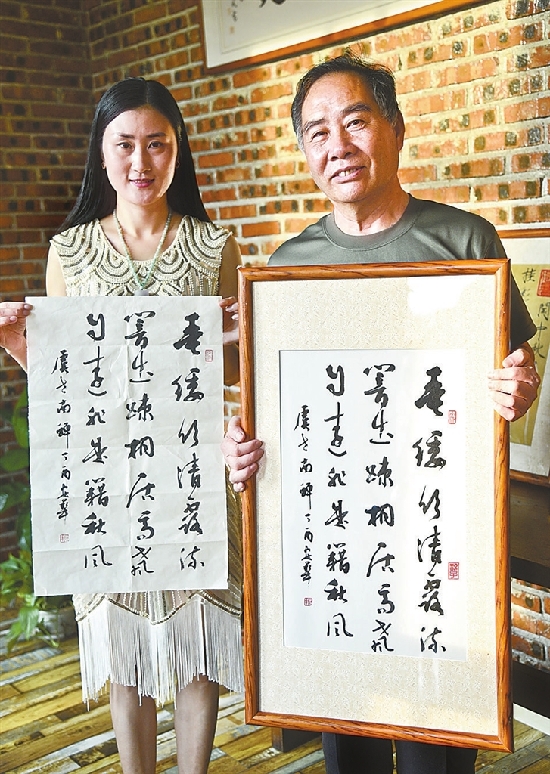 垂緌饮清露流
响出疏桐居高声
自远非是籍秋风
虞世南蝉丁酉
垂緌饮清露流
响出疏桐居高声
自远非是籍秋风
虞世南蝉丁酉